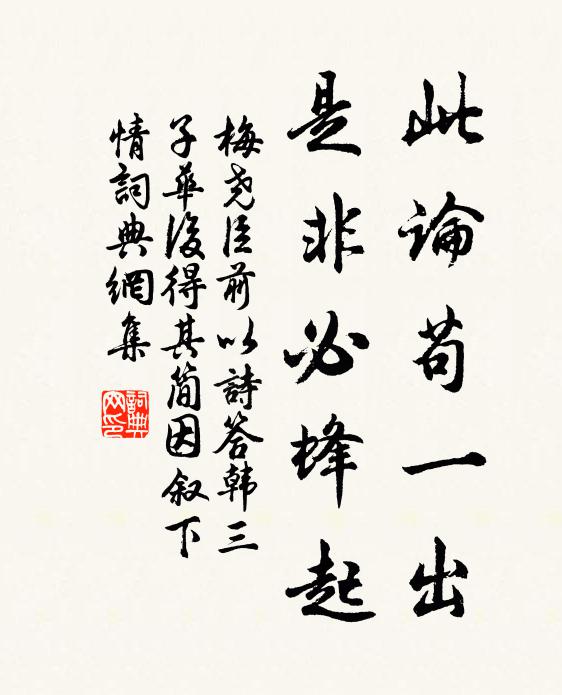 此論苟一出
是非必蜂起
梅尧臣前以詩答韩三
子華後得其简因叙下
情詞典網集
詞典
网印